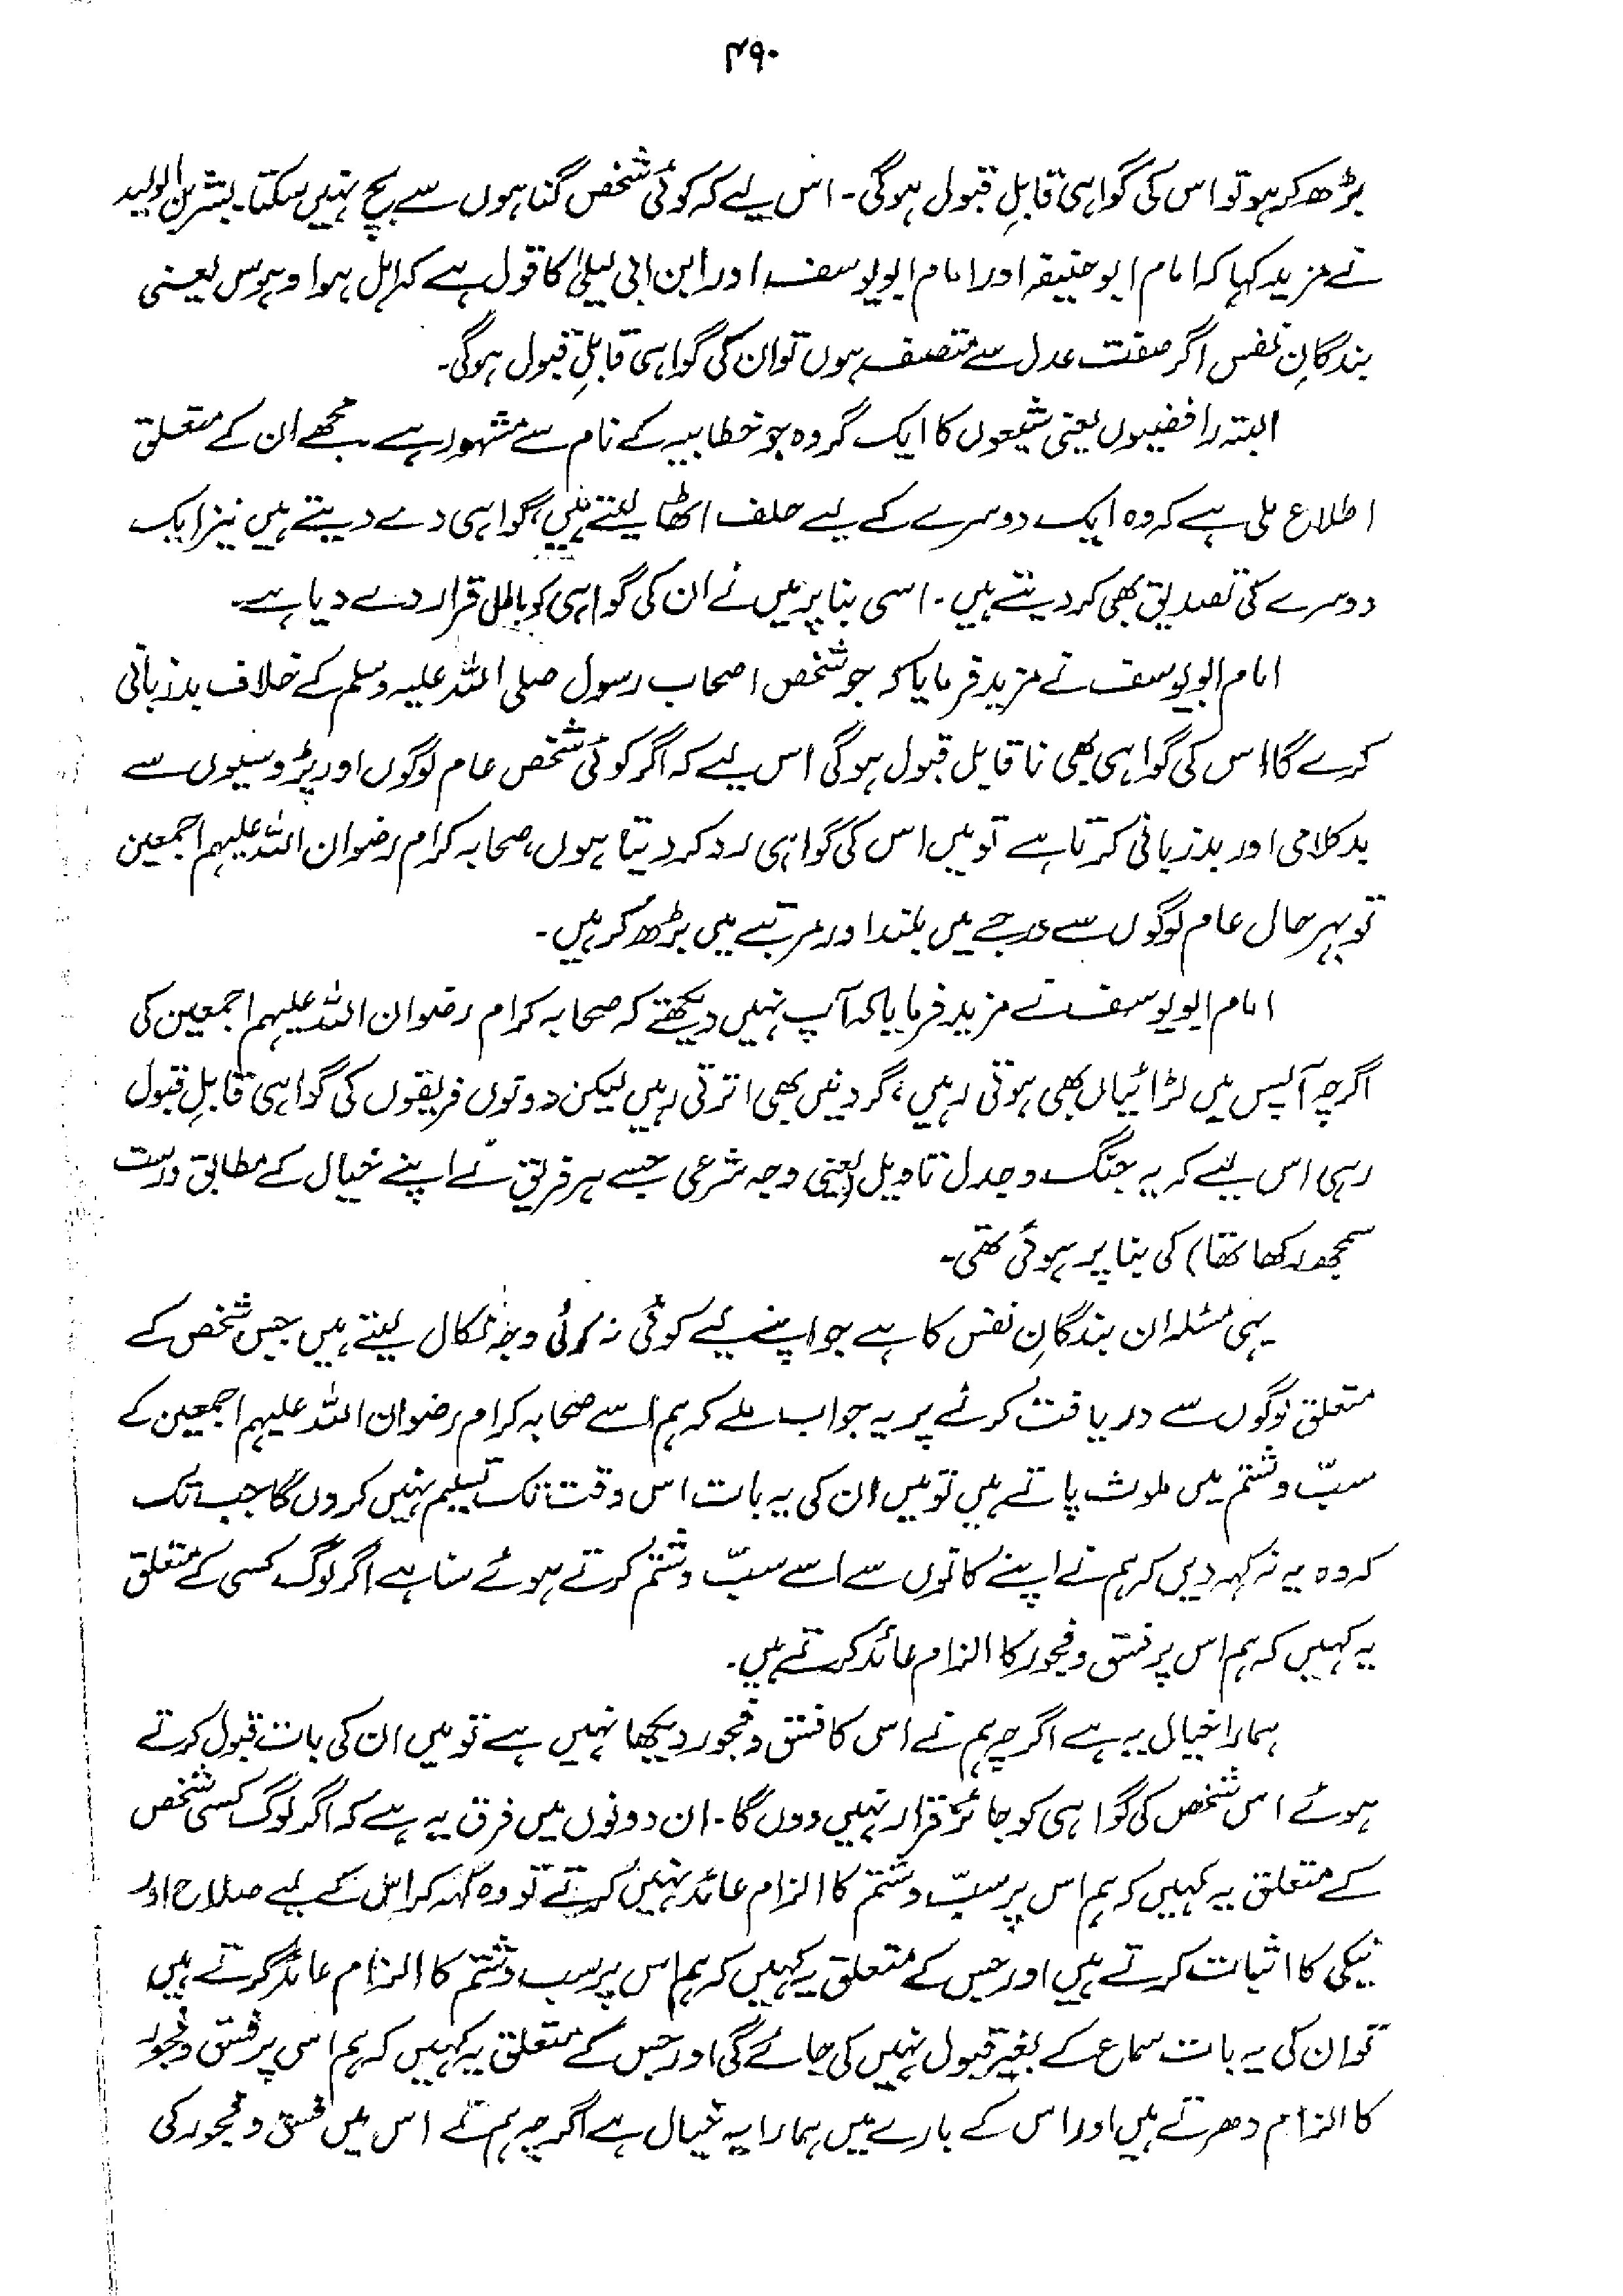 ۴۹۰
بڑھ کر ہو تو اس کی گواہی قابلِ قبول ہوگی۔ اس لیے کہ کوئی شخص گناہوں سے بچ نہیں سکتا۔ بشر بن الولید
نے مزید کہا کہ امام ابو حنیفہ اور امام ابو یوسف اور ابن ابی لیلیٰ کا قول ہے کہ اہل ہوا و ہوس یعنی
بندگانِ نفس اگر صفت عدل سے متصف ہوں تو ان کی گواہی قابلِ قبول ہوگی۔
البتہ رافضیوں یعنی شیعوں کا ایک گروہ جو خطابیہ کے نام سے مشہور ہے مجھے ان کے متعلق
اطلاع ملی ہے کہ وہ ایک دوسرے کے لیے حلف اٹھا لیتے ہیں، گواہی دے دیتے ہیں نیز ایک
دوسرے کی تصدیق بھی کر دیتے ہیں۔ اسی بنا پر میں نے ان کی گواہی کو باطل قرار دے دیا ہے۔
امام ابو یوسف نے مزید فرمایا کہ جو شخص اصحاب رسول صلی اللہ علیہ وسلم کے خلاف بدزبانی
کرے گا اس کی گواہی بھی ناقابل قبول ہوگی اس لیے کہ اگر کوئی شخص عام لوگوں اور پڑوسیوں سے
بدکلامی اور بدزبانی کرتا ہے تو میں اس کی گواہی رد کر دیتا ہوں، صحابہ کرام رضوان اللہ علیہم اجمعین
تو بہر حال عام لوگوں سے درجے میں بلند اور مرتبے میں بڑھ کر ہیں۔
امام ابو یوسف نے مزید فرمایا کہ آپ نہیں دیکھتے کہ صحابہ کرام رضوان اللہ علیہم اجمعین کی
اگرچہ آپس میں لڑائیاں بھی ہوتی رہیں، گردنیں بھی اترتی رہیں لیکن دونوں فریقوں کی گواہی قابلِ قبول
رہی اس لیے کہ یہ جنگ وجدل تاویل (یعنی وجہ شرعی جسے ہر فریق نے اپنے خیال کے مطابق درست
سمجھ رکھا تھا) کی بنا پر ہوئی تھی۔
یہی مسئلہ ان بندگانِ نفس کا ہے جو اپنے لیے کوئی نہ کوئی وجہ نکال لیتے ہیں جس شخص کے
متعلق لوگوں سے دریافت کرنے پر یہ جواب ملے کہ ہم اسے صحابہ کرام رضوان اللہ علیہم اجمعین کے
سبّ و شتم میں ملوث پاتے ہیں تو میں ان کی یہ بات اس وقت تک تسلیم نہیں کروں گا جب تک
کہ وہ یہ نہ کہہ دیں کہ ہم نے اپنے کانوں سے اسے سبّ و شتم کرتے ہوئے سنا ہے اگر لوگ کسی کے متعلق
یہ کہیں کہ ہم اس پر فسق و فجور کا الزام عائد کرتے ہیں۔
ہمارا خیال یہ ہے اگرچہ ہم نے اس کا فسق و فجور دیکھا نہیں ہے تو میں ان کی بات قبول کرتے
ہوئے اس شخص کی گواہی کو جائز قرار نہیں دوں گا۔ ان دونوں میں فرق یہ ہے کہ اگر لوگ کسی شخص
کے متعلق یہ کہیں کہ ہم اس پر سبّ و شتم کا الزام عائد نہیں کرتے تو وہ کہہ کر اس کے لیے صلاح اور
نیکی کا اثبات کرتے ہیں اور جس کے متعلق یہ کہیں کہ ہم اس پر سب و شتم کا الزام عائد کرتے ہیں
تو ان کی یہ بات سماع کے بغیر قبول نہیں کی جائے گی اور جس کے متعلق یہ کہیں کہ ہم اس پر فسق و فجور
کا الزام دھرتے ہیں اور اس کے بارے میں ہمارا یہ خیال ہے اگرچہ ہم نے اس میں فسق و فجور کی